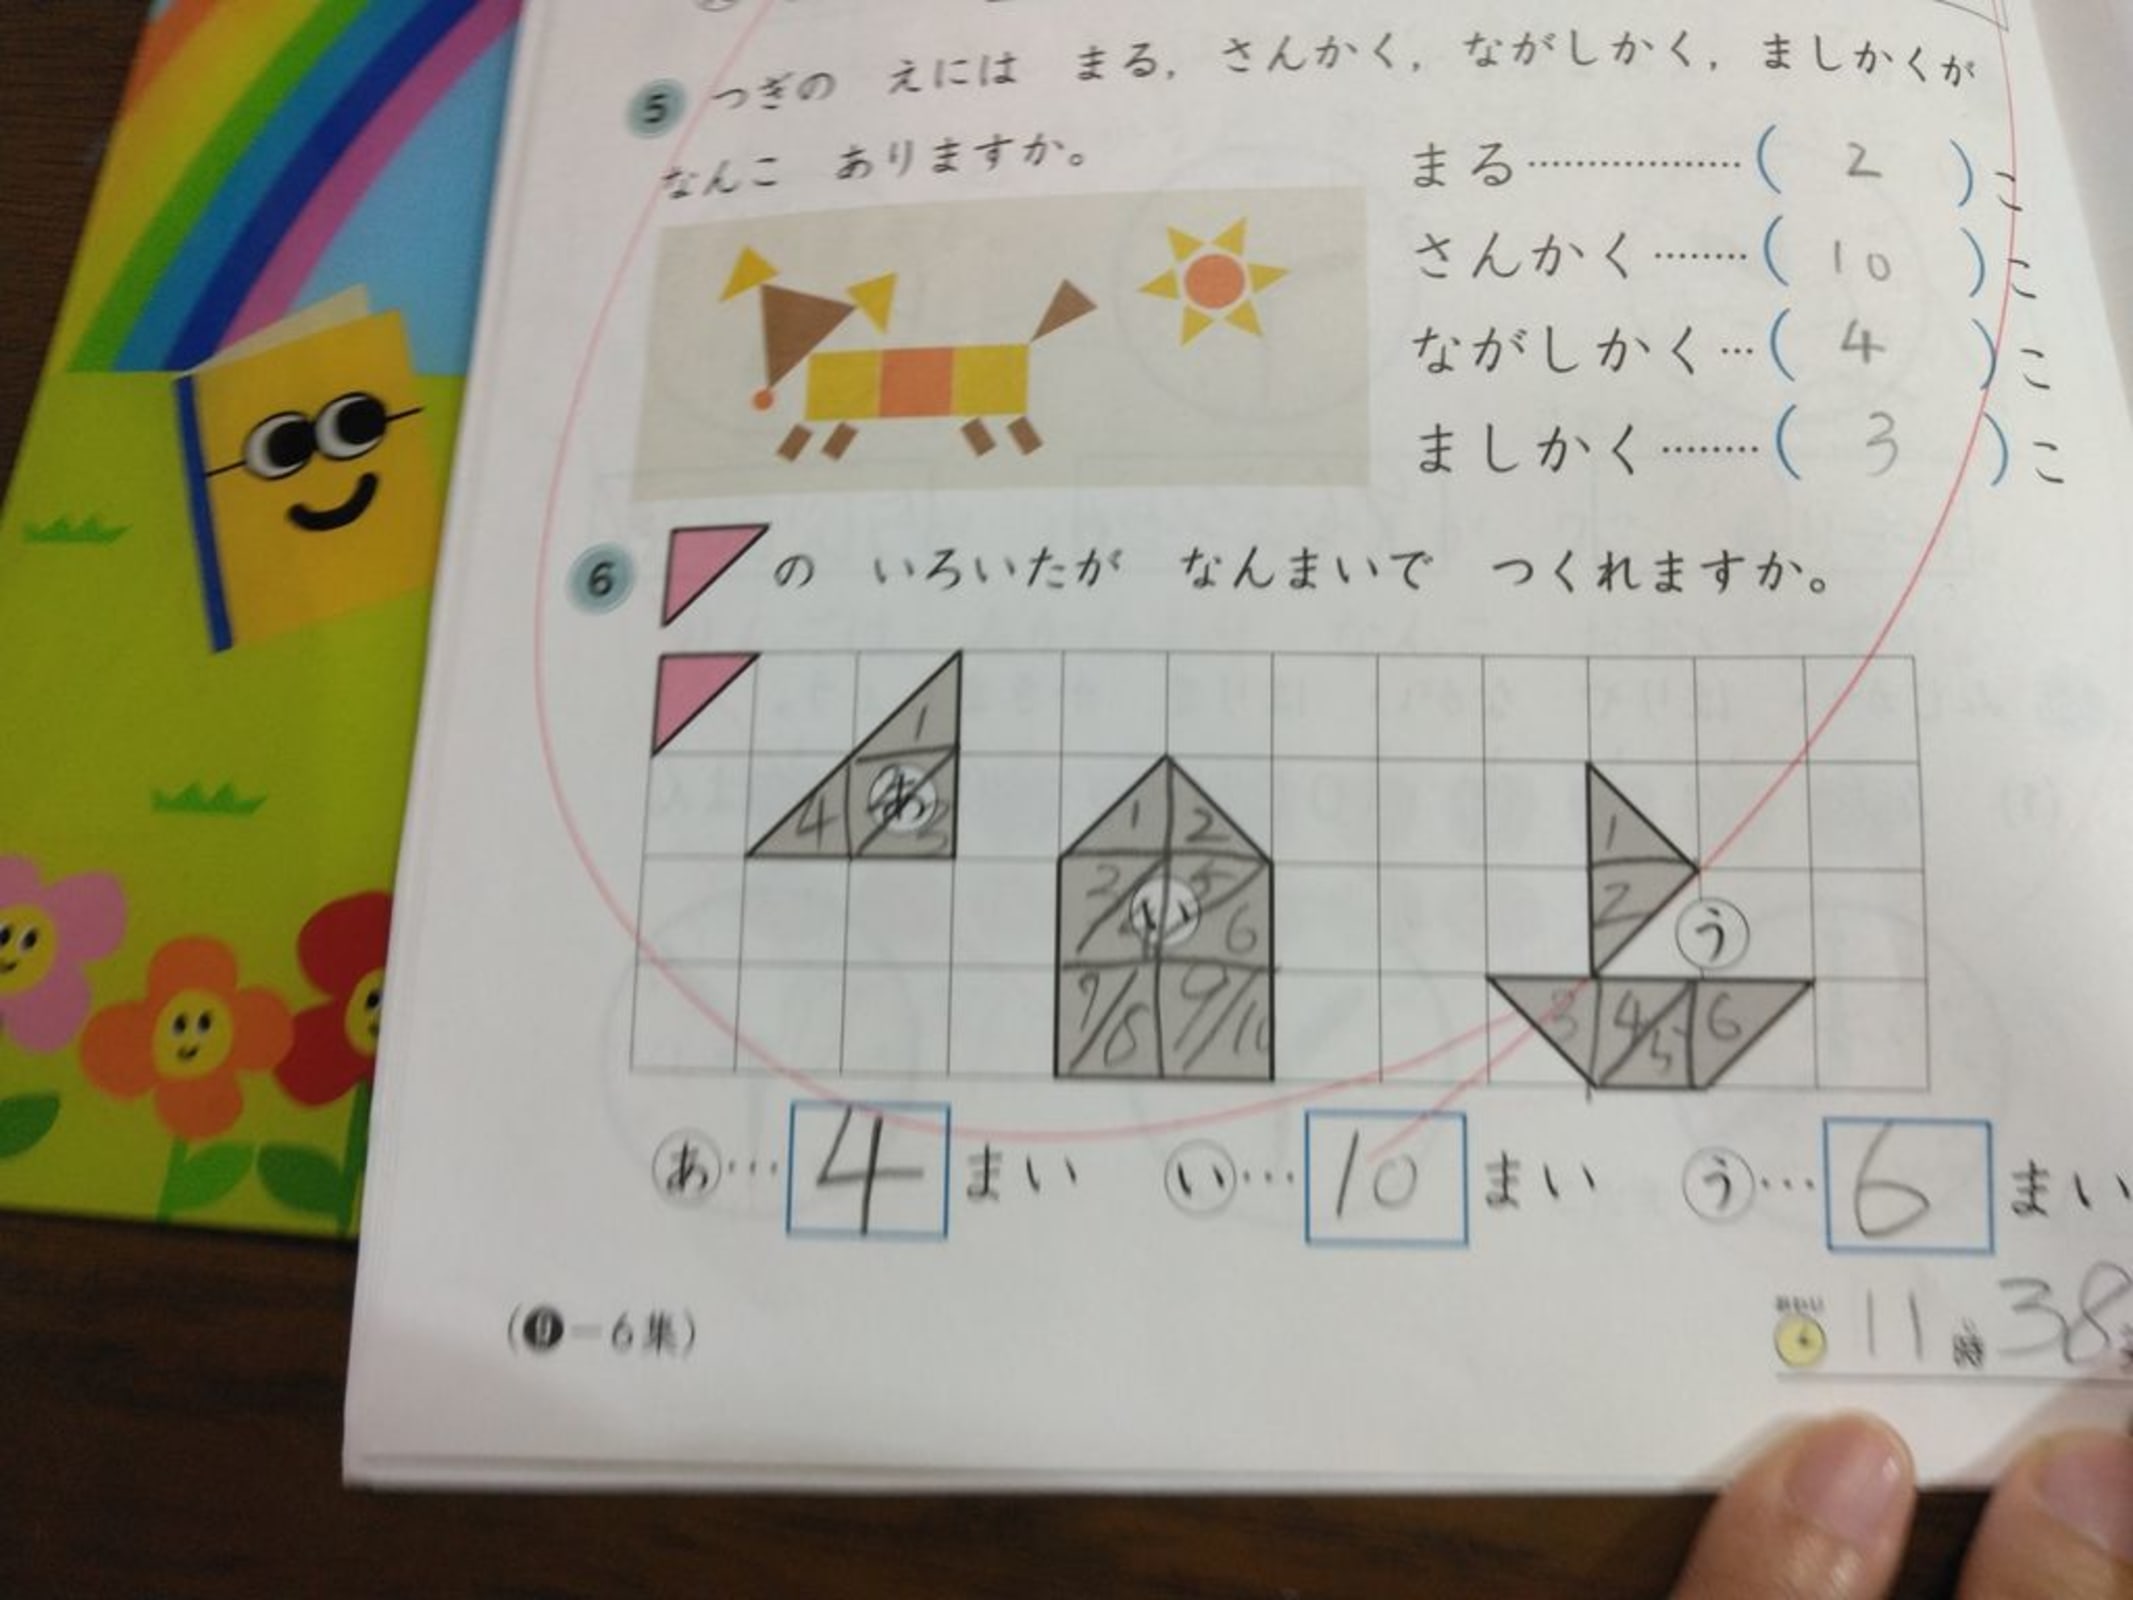 5 つぎの えには まる, さんかく, ながしかく, ましかくが
なんこ ありますか。
まる………………( 2 )こ
さんかく………( 10 )こ
ながしかく…( 4 )こ
ましかく………( 3 )こ
6 の いろいたが なんまいで つくれますか。
1
4 あ 3
1 2
2 い 5 6
7/8 9/10
1
2 う
3 4 5 6
あ… 4 まい い… 10 まい う… 6 まい
11 時 38
-6集)